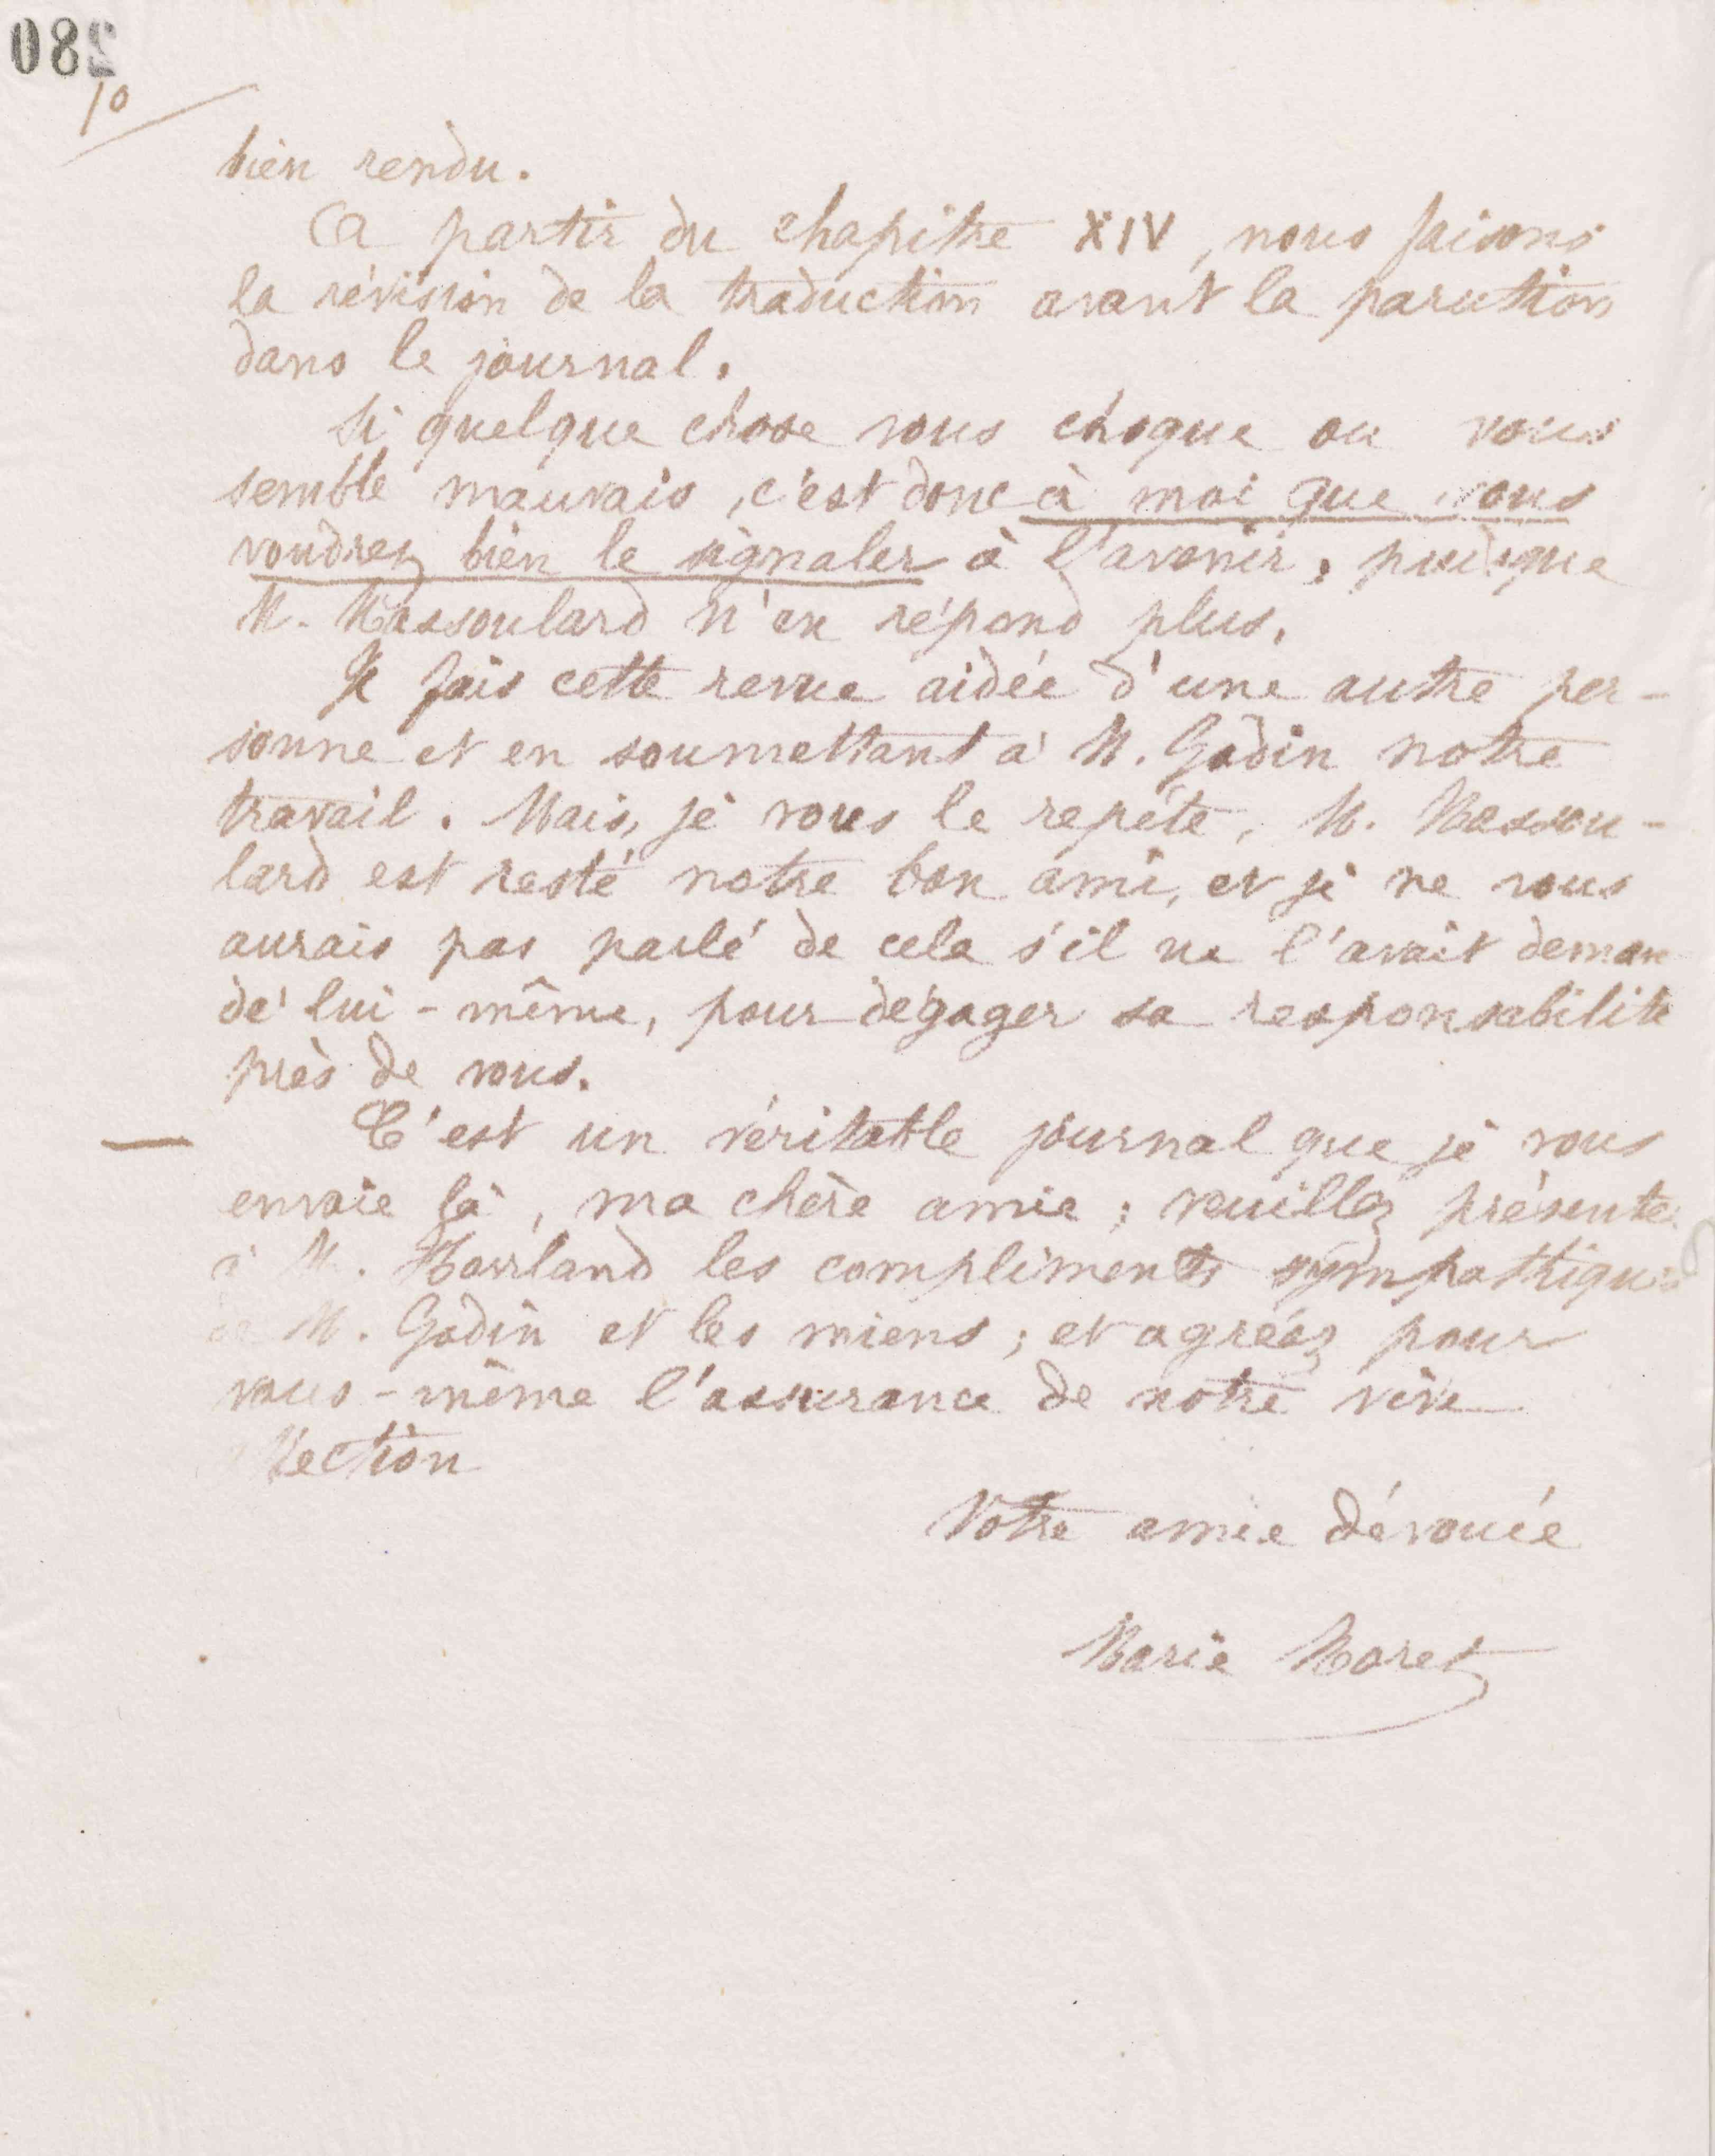 280
10
bien rendu.
A partir du chapitre XIV, nous faisons
la révision de la traduction avant la parution
dans le journal.
Si quelque chose vous choque ou vous
semble mauvais, c'est donc à moi que vous
voudrez bien le signaler à l'avenir, puisque
M. Massoulard n'en répond plus.
Je fais cette revue aidée d'une autre per-
sonne et en soumettant à M. Godin notre
travail. Mais, je vous le repète, M. Massou-
lard est resté notre bon ami, et je ne vous
aurais pas parlé de cela s'il ne l'avait deman
dé lui-même, pour dégager sa responsabilité
près de vous.
— C'est un véritable journal que je vous
envoie là, ma chère amie ; veuillez présenter
à M. Howland les compliments sympathiques
de M. Godin et les miens ; et agréez pour
vous-même l'assurance de notre vive
affection
Votre amie dévouée
Marie Moret